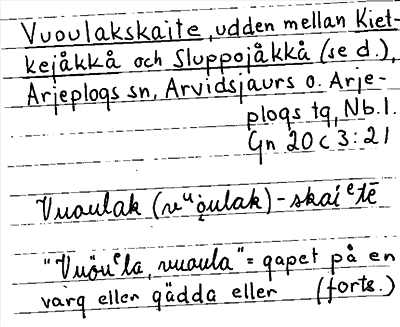 Vuoulakskaite, udden mellan Kiet-
kejåkkå och Sluppojåkkå (se d.),
Arjeplogs sn, Arvidsjaurs o. Arje-
plogs tg, Nb.l.
Gn 20 c 3:21
Vuoulak (vᵘo̜ulak) - skaiᵉtē
"Vuöuᵉla, vuoula" = gapet på en
varg eller gädda eller (forts.)